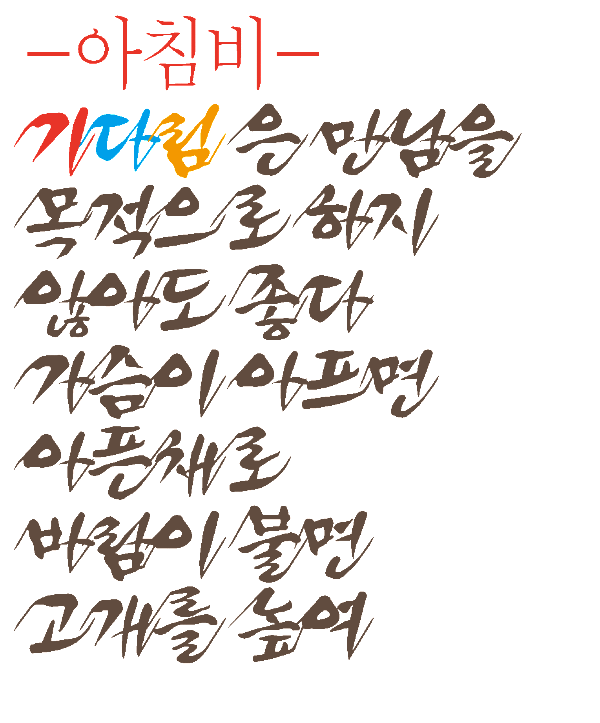 -아침비-
기다림은 만남을
목적으로 하지
않아도 좋다
가슴이 아프면
아픈채로
바람이 불면
고개를 높여